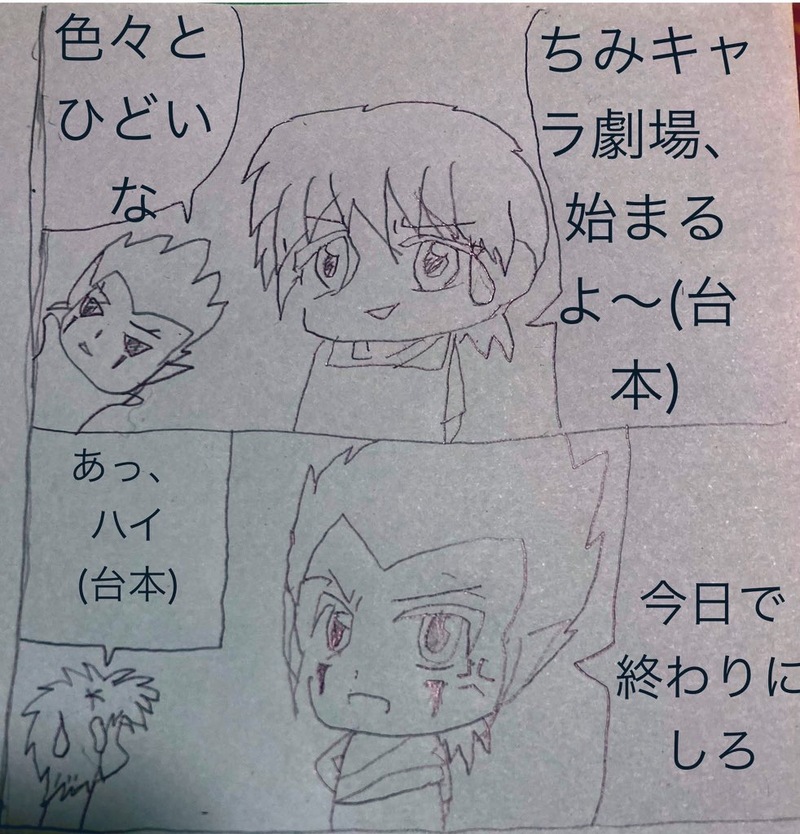 ちみキャ
ラ劇場、
始まる
よ〜(台
本)
色々と
ひどい
な
今日で
終わりに
しろ
あっ、
ハイ
(台本)